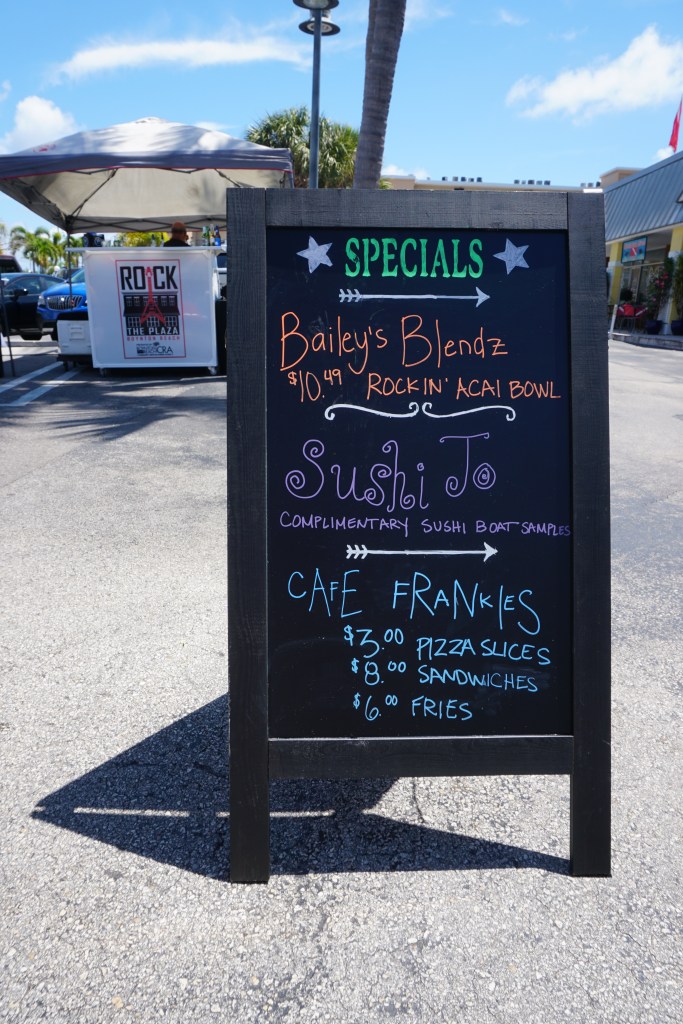 SPECIALS
Bailey's Blendz
$10.49 ROCKIN' ACAI BOWL
Sushi Jo
COMPLIMENTARY SUSHI BOAT SAMPLES
CAFE FRANKIES
$3.00 PIZZA SLICES
$8.00 SANDWICHES
$6.00 FRIES
ROCK
THE PLAZA
BOYNTON BEACH
CRA